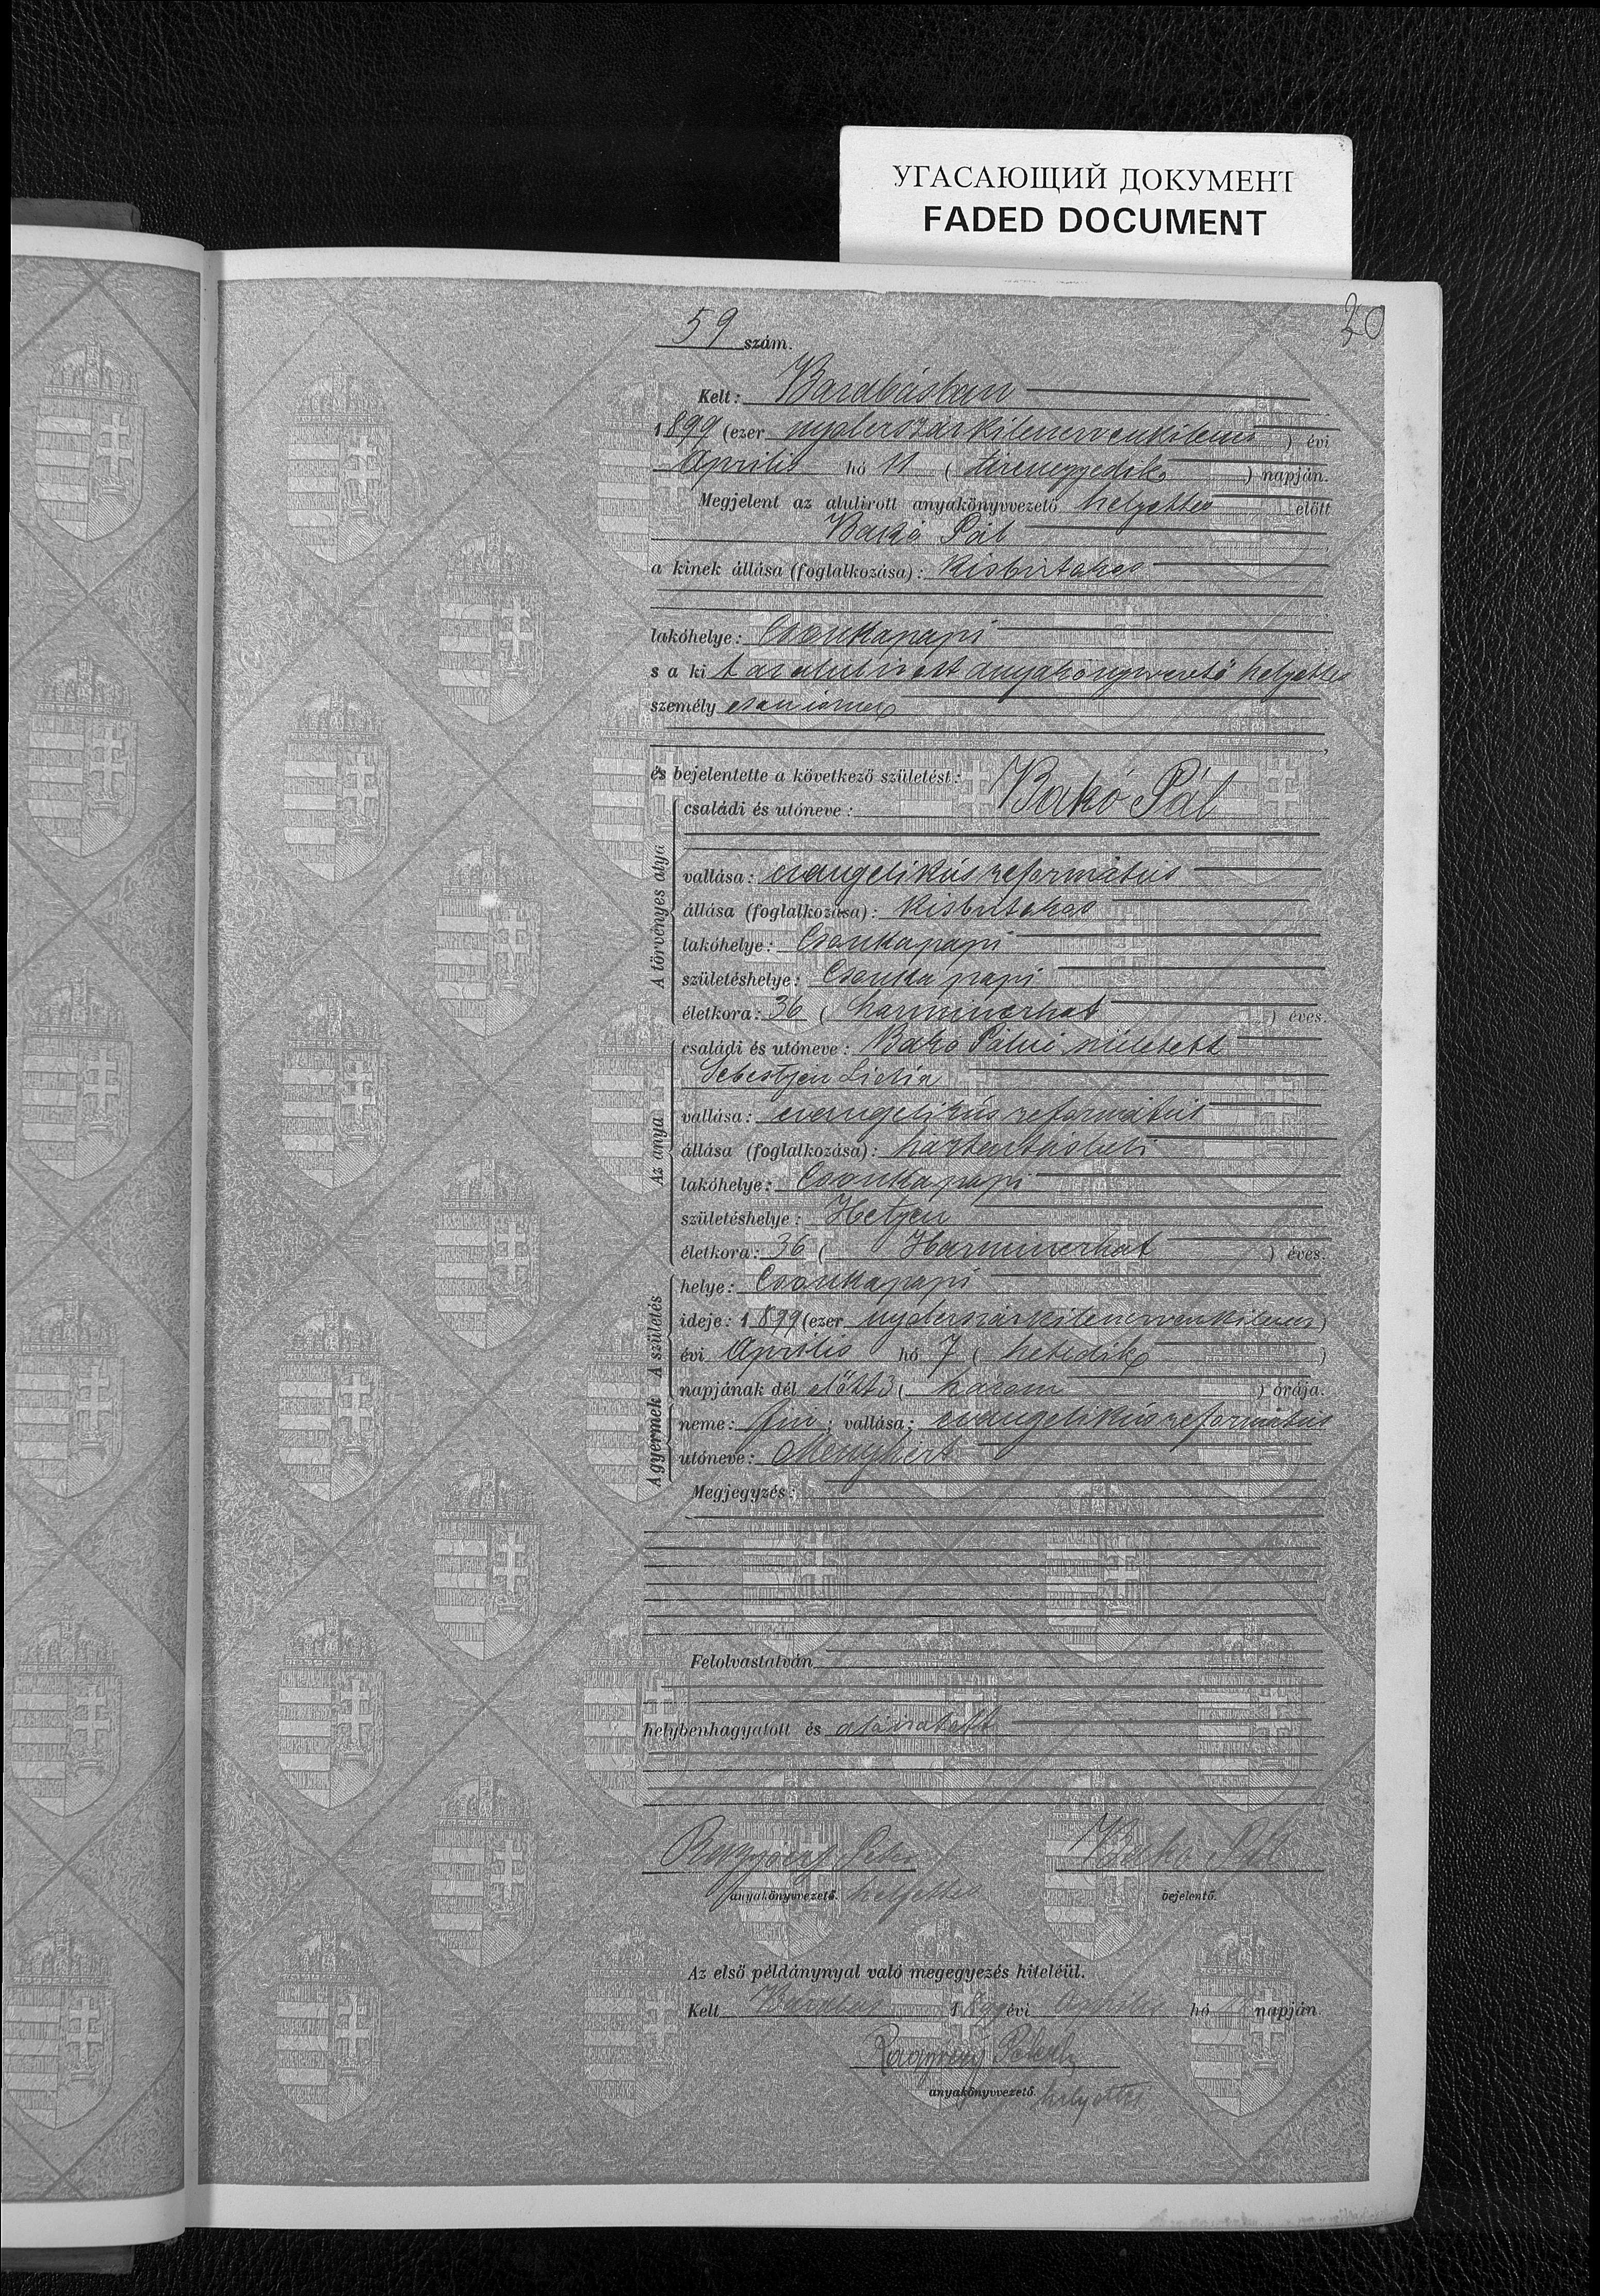 УГАСАЮЩИЙ ДОКУМЕНТ
FADED DOCUMENT
20
59 szám.
Kelt: Barabásban
1899 (ezer nyolcszázkilencvenkilenc) évi
Április hó 11 (tizenegyedik) napján.
Megjelent az alulirott anyakönyvvezető helyettes előtt
Bakó Pál
a kinek állása (foglalkozása): kisbirtokos
lakóhelye: Csonkapapi
s a ki t az alulirott anyakönyvvezető helyettes
személy esen ismer
és bejelentette a következő születést:
A törvényes atya
családi és utóneve: Bakó Pál
vallása: evangelikus református
állása (foglalkozása): kisbirtokos
lakóhelye: Csonkapapi
születéshelye: Csonka papi
életkora: 36 (harminczhat) éves.
Az anya
családi és utóneve: Bakó Pálné született
Sebestyén Lidia
vallása: evangelikus református
állása (foglalkozása): háztartásbeli
lakóhelye: Csonkapapi
születéshelye: Hetyen
életkora: 36 (Harminczhat) éves.
A születés
helye: Csonkapapi
ideje: 1899 (ezer nyolcszázkilencvenkilenc)
évi Április hó 7 (hetedik)
napjának dél előtt 3 (három) órája.
A gyermek
neme: fiu; vallása: evangelikus református
utóneve: Menyhért
Megjegyzés:
Felolvastatván
helybenhagyatott és aláiratott
Bakó Pál
anyakönyvvezető. helyettes
bejelentő.
Az első példánynyal való megegyezés hiteléül.
Kelt Barabás 1899 évi Április hó 11 napján.
anyakönyvvezető. helyettes